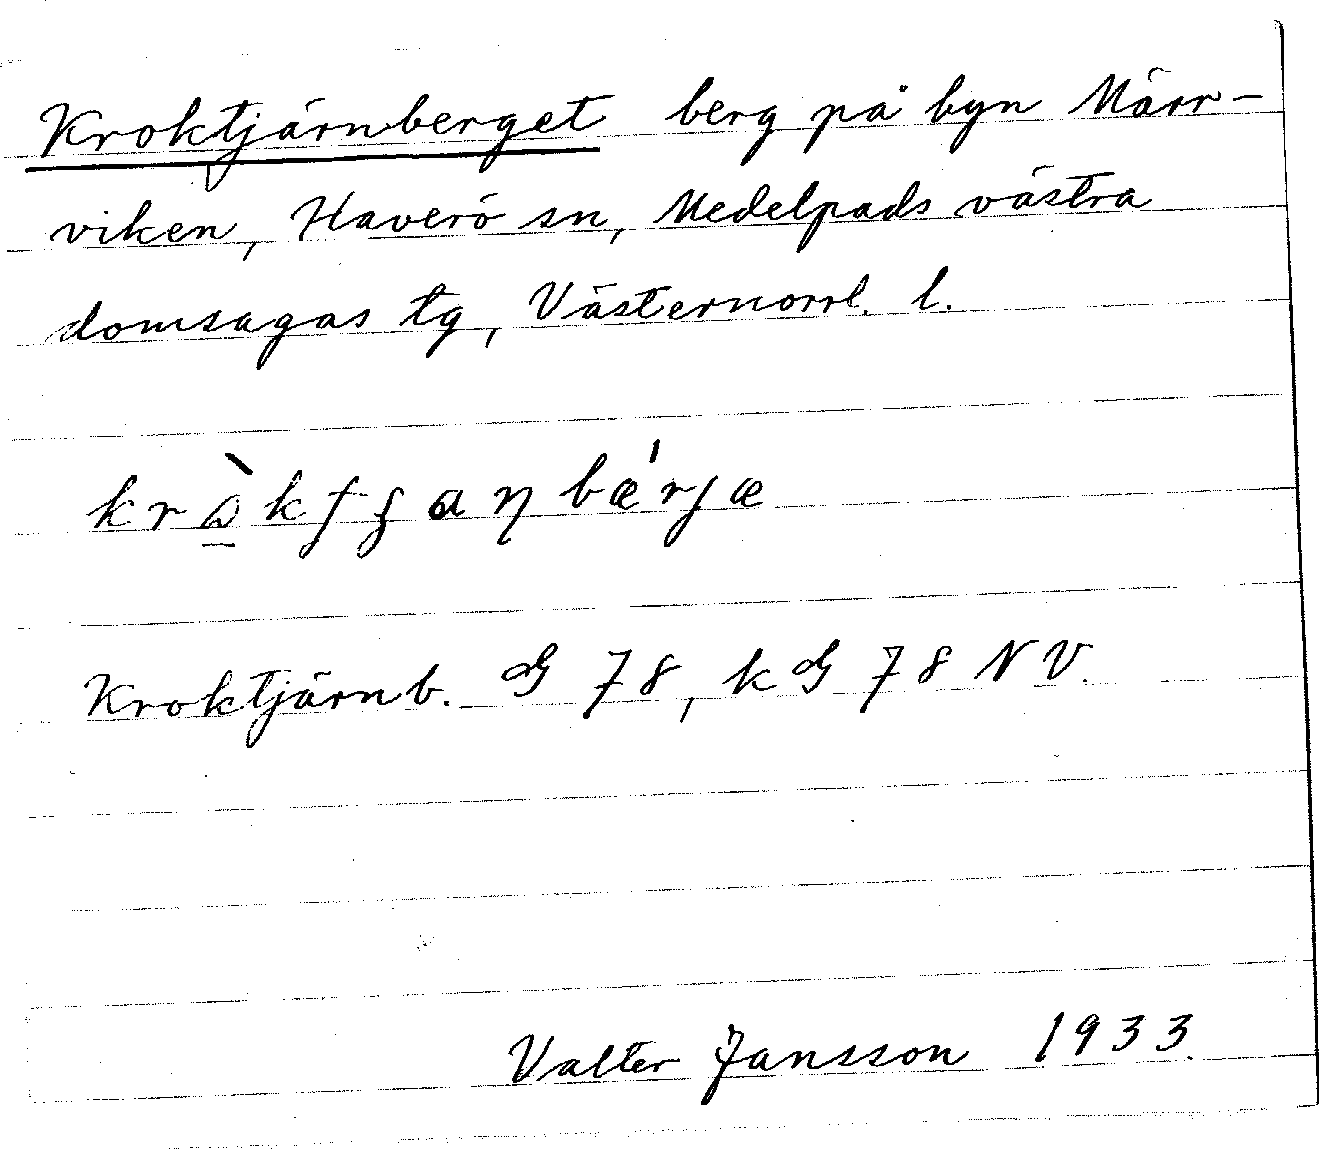 Kroktjärnberget berg på byn Märr-
viken, Haverö sn, Medelpads västra
domsagas tg, Västernorrl. l.
Kroktjärnb. G 78, kG 78 NV.
Valter Jansson 1933.